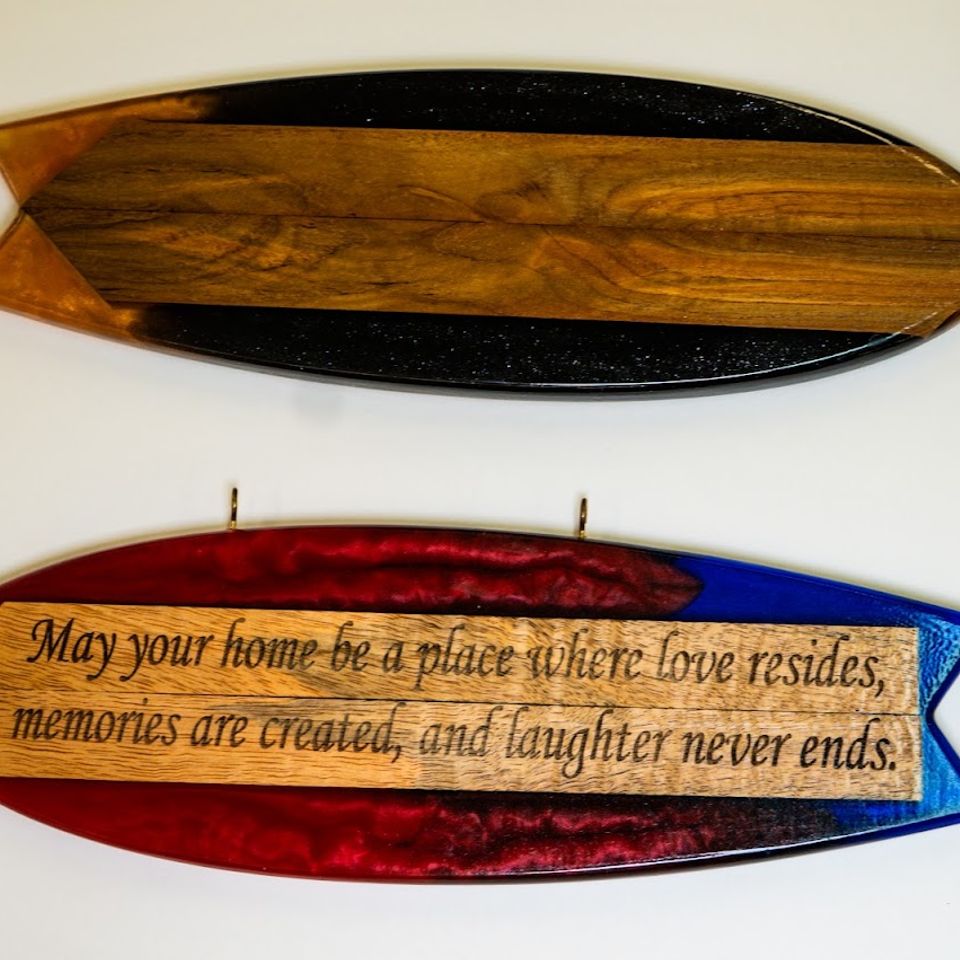 May your home be a place where love resides,
memories are created, and laughter never ends.